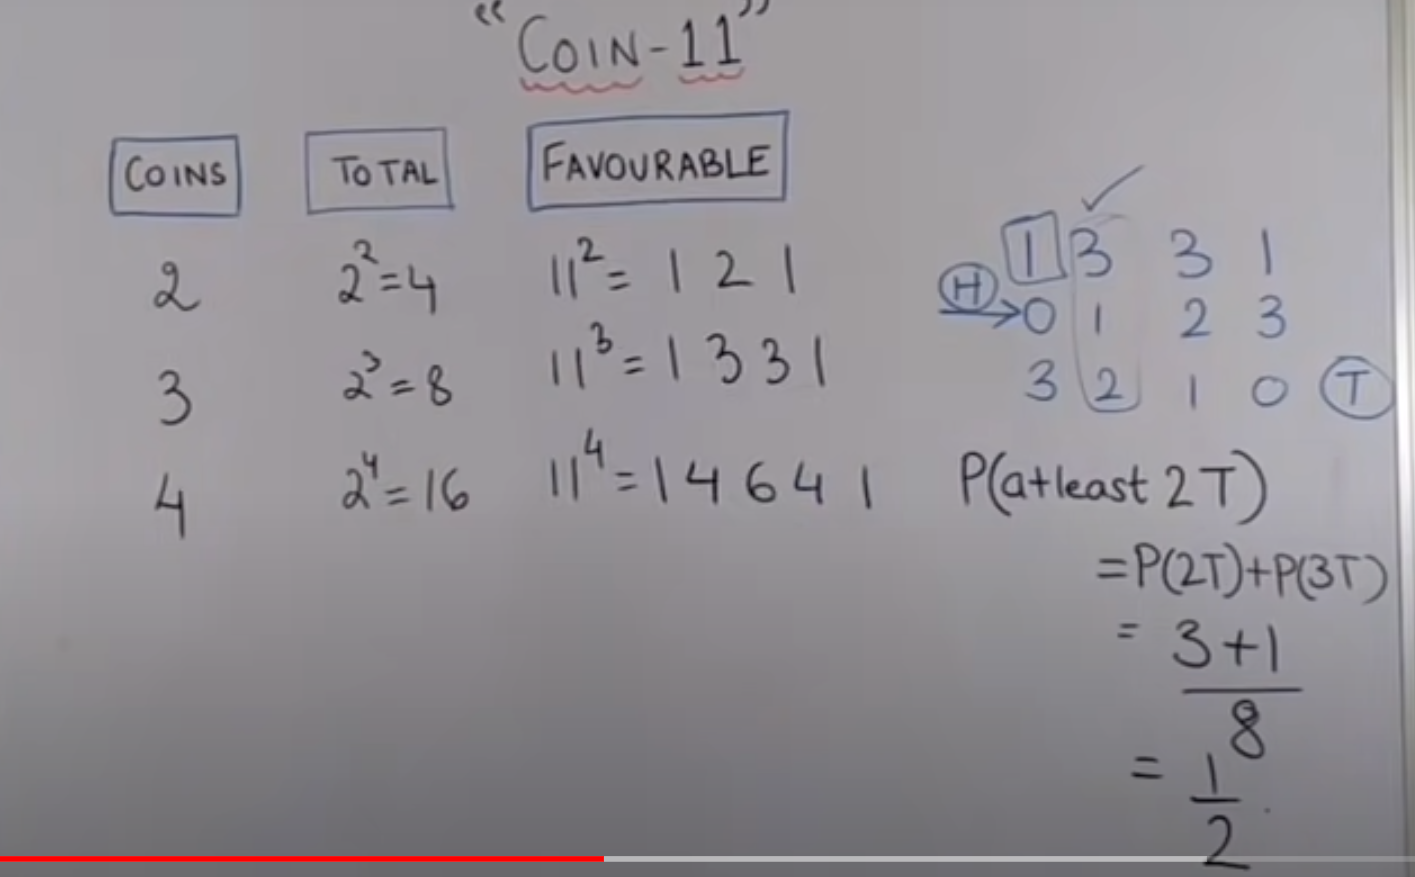 “COIN-11”
COINS TOTAL FAVOURABLE
2 2²=4 11²= 1 2 1
3 2³=8 11³=1 3 3 1
4 2⁴=16 11⁴=1 4 6 4 1
1 3 3 1
H 0 1 2 3
3 2 1 0 T
P(atleast 2T)
=P(2T)+P(3T)
= 3+1
8
= 1
2